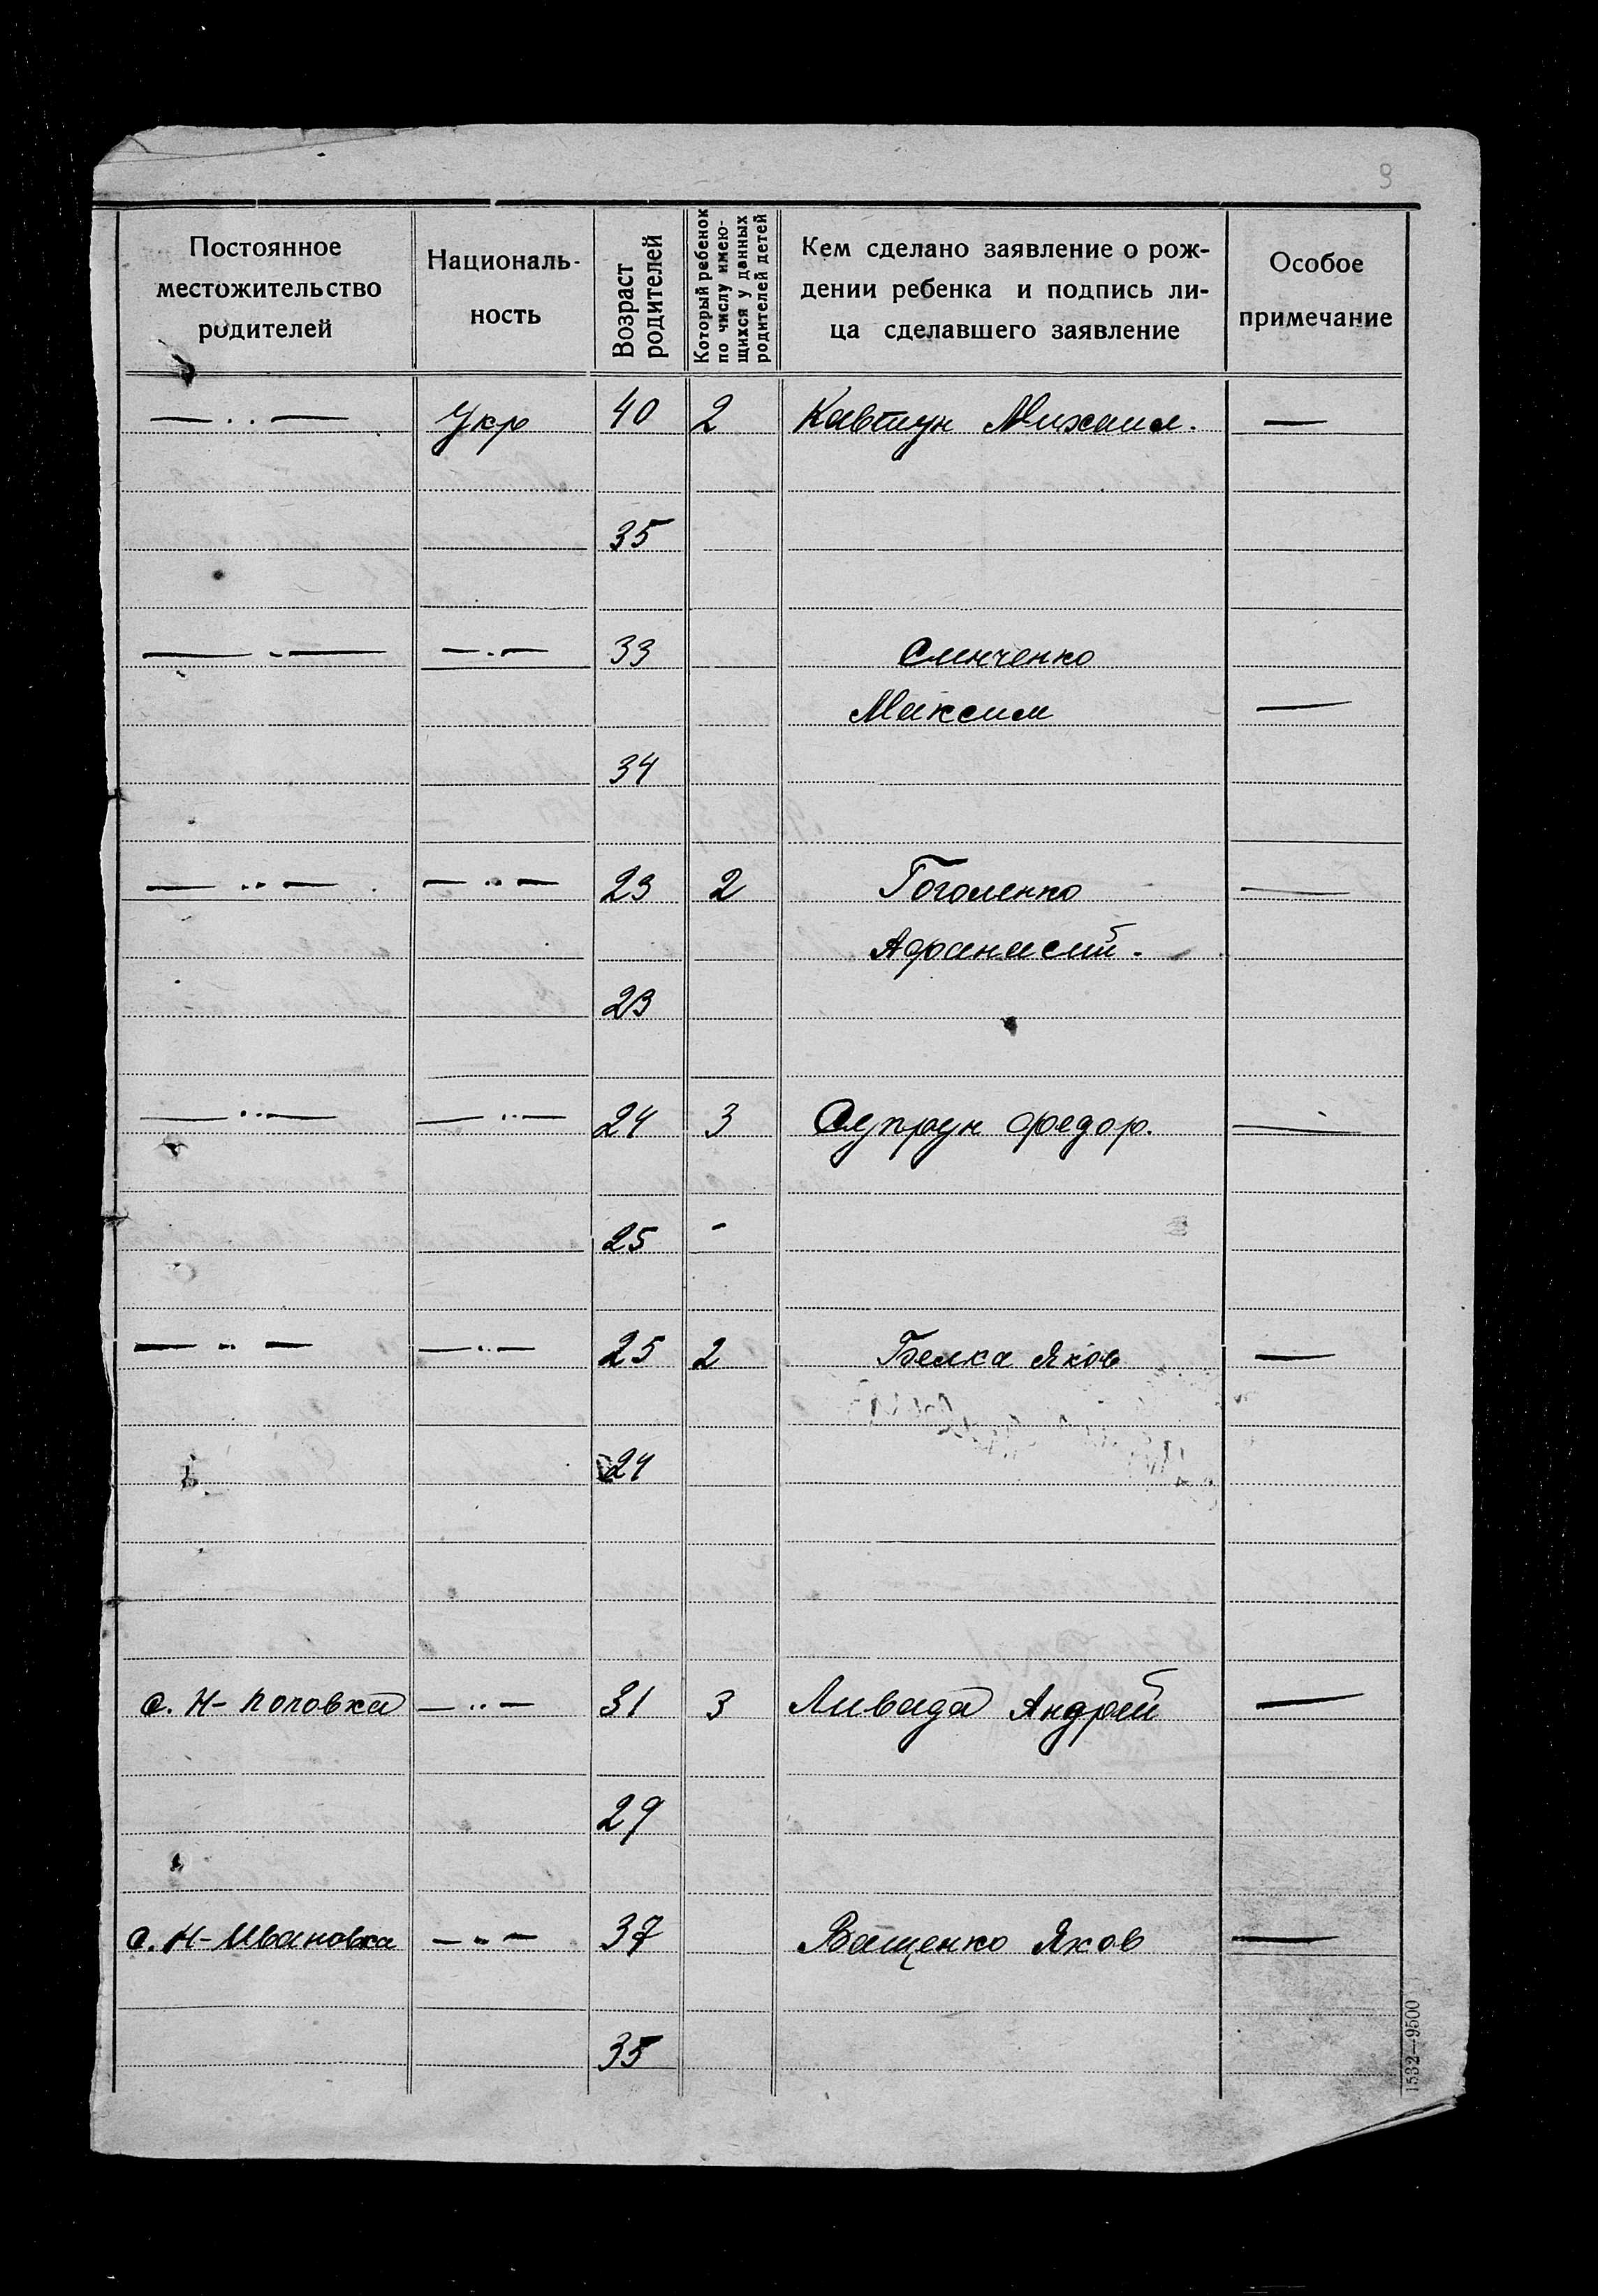 9
Постоянное
местожительство
родителей
Националь-
ность
Возраст
родителей
Который ребенок
по числу имею-
щихся у данных
родителей детей
Кем сделано заявление о рож-
дении ребенка и подпись ли-
ца сделавшего заявление
Особое
примечание
— . . — Укр 40 2 Кавтун Михаил. —
35
— . — — . — 33 Слинченко
Максим —
34
— . . — — . . — 23 2 Гоголенко —
Афанасий.
23
— . . — — . . — 24 3 Супрун Федор. —
25 -
— . . — — . . — 25 2 Белка Яков —
24
с. Н-Поповка — . . — 31 3 Ливада Андрей —
29
с. Н-Ивановка — . . — 37 Ващенко Яков —
35
1532—9500